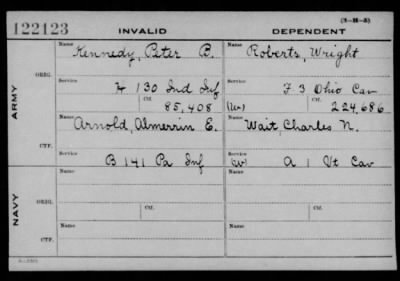 122123 INVALID DEPENDENT (3-M-5)
ARMY
ORIG.
Name Kennedy, Peter B. Name Roberts, Wright
Service H 130 Ind Inf Service F 3 Ohio Cav
Ctf. 85,408 (W) Ctf. 224,686
CTF.
Name Arnold, Almerrin E. Name Wait, Charles N.
Service B 141 Pa Inf Service (W) A 1 Vt Cav
NAVY
ORIG.
Name Name
Ctf. Ctf.
CTF.
Name Name